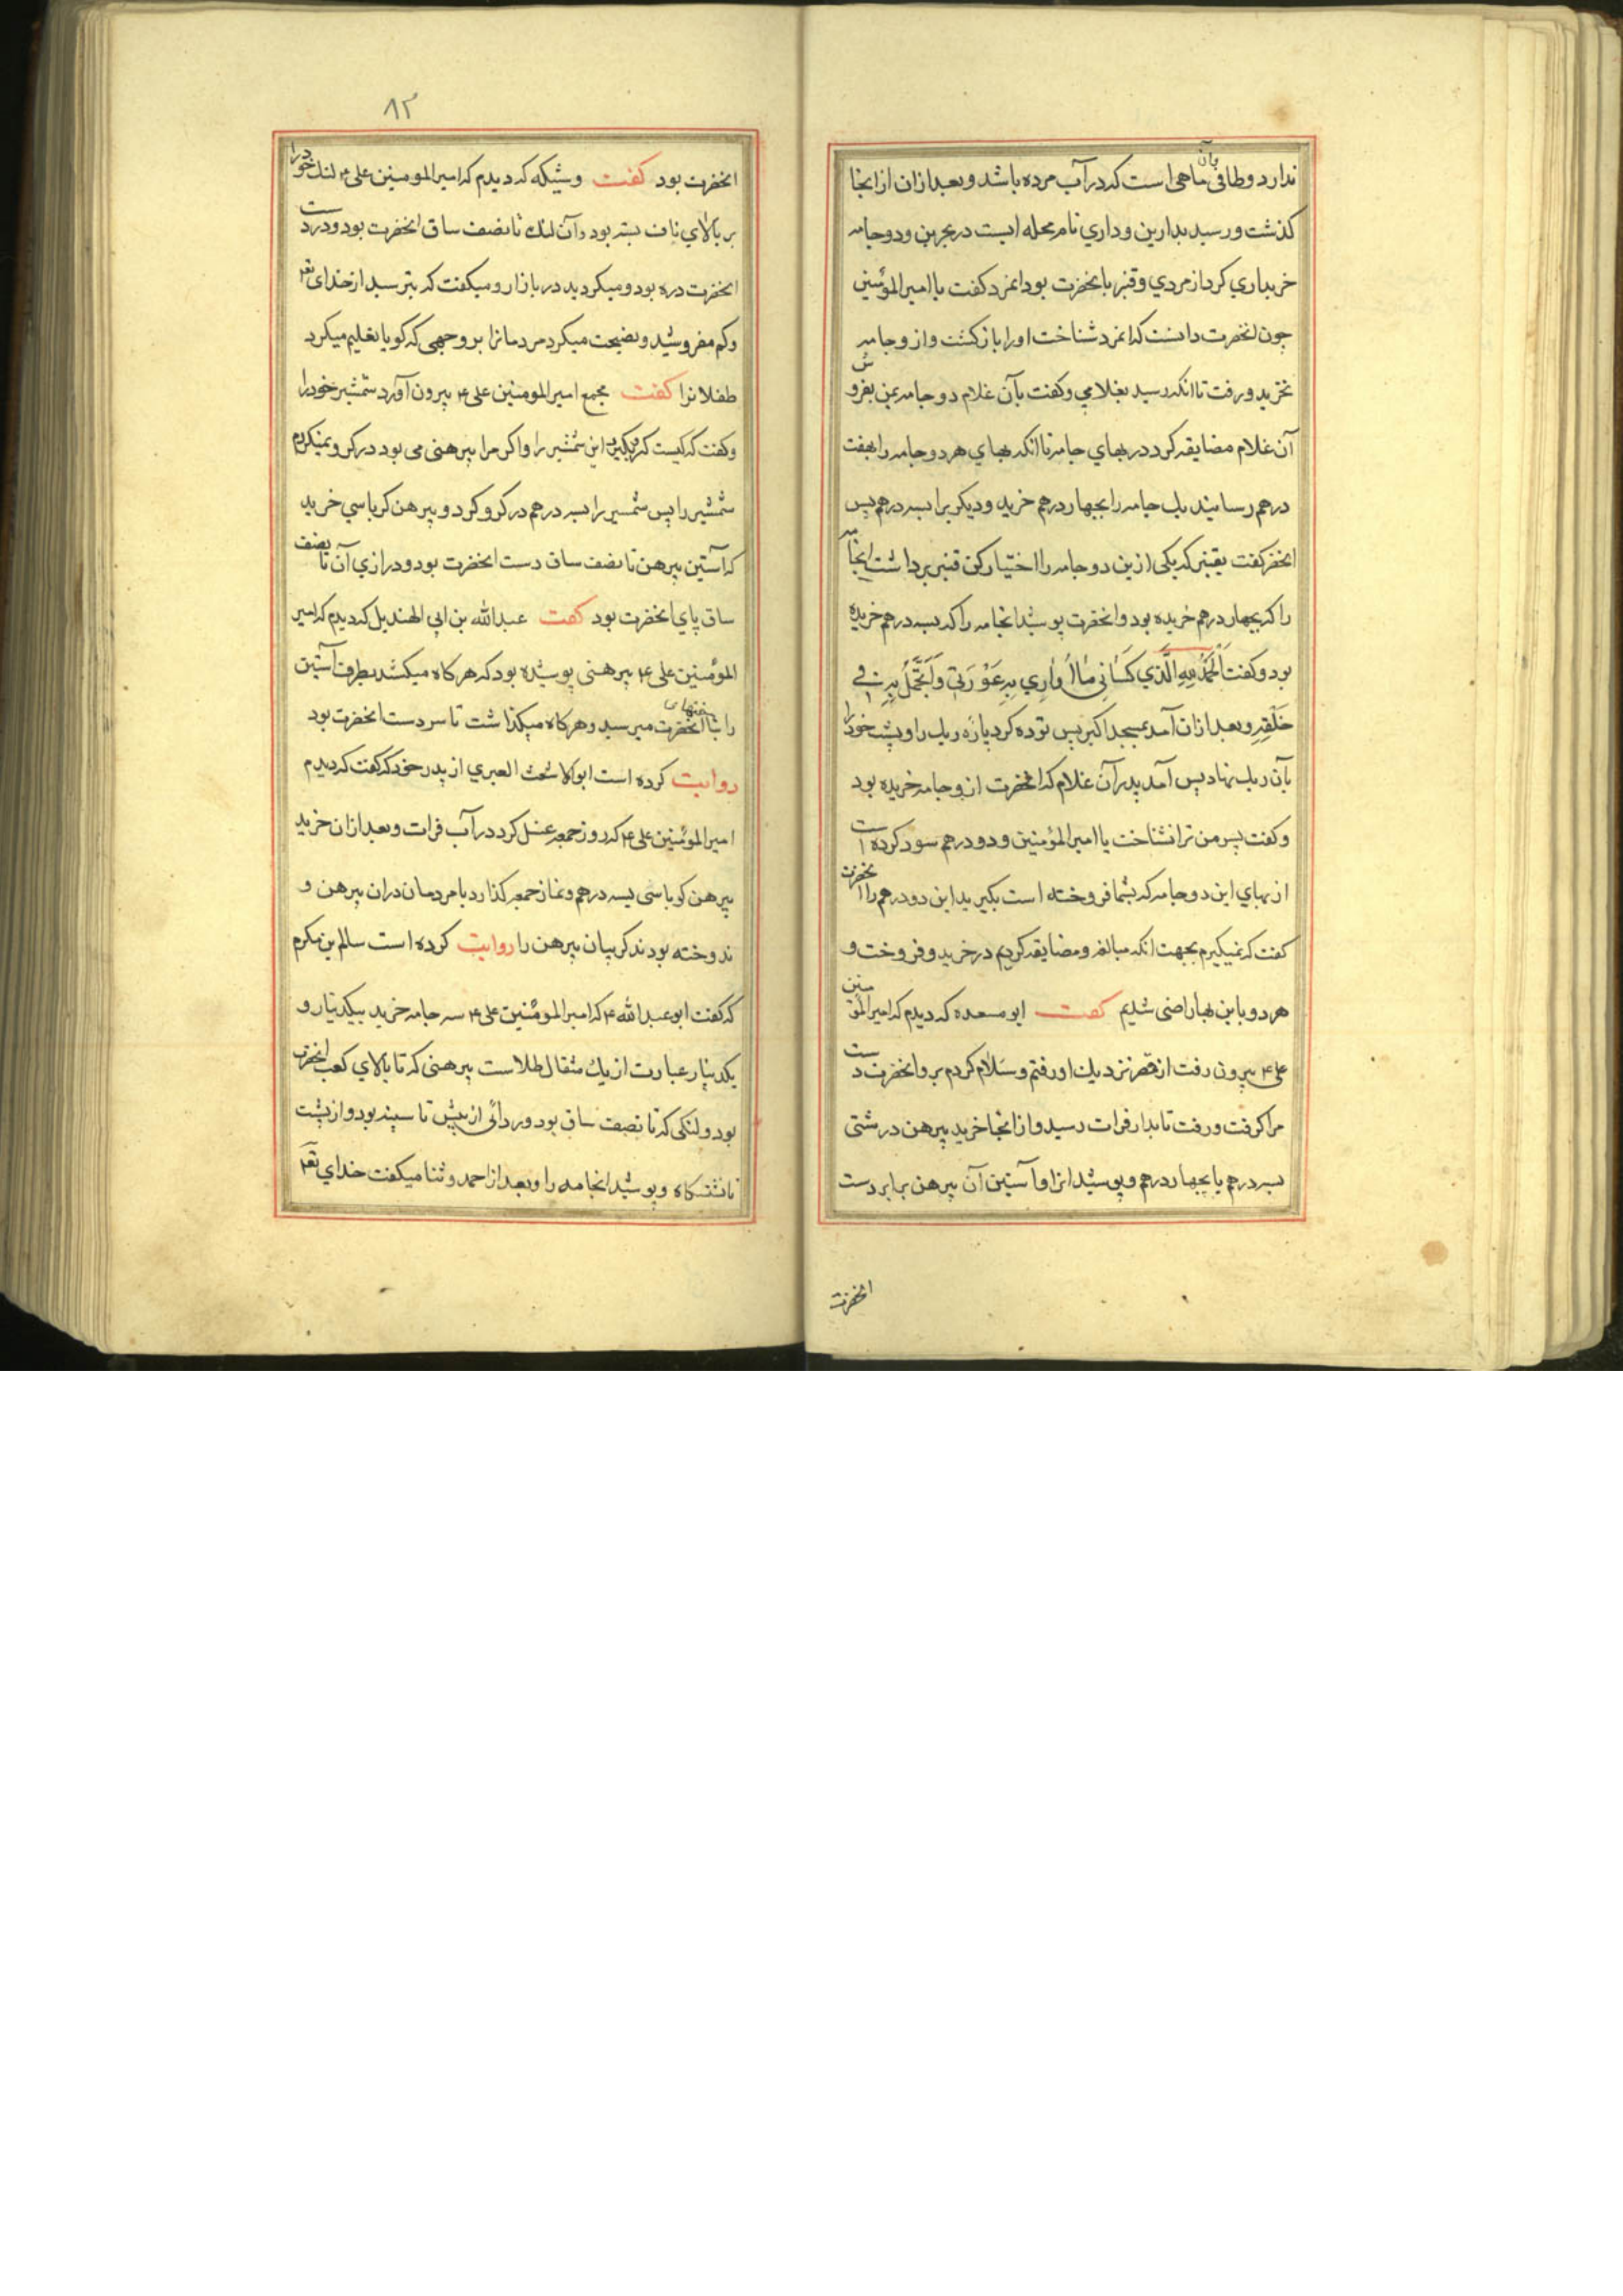 ندارد و طافی بآن ماهی است که در آب مرده باشد و بعد ازان از انجا
کذشت و رسید بدارین و داری نام محله ایست در بحرین و دو جامه
خریداری کرد از مردی و قنبر با نحضرت بود انمرد کفت یا امیر المؤمنین
چون انحضرت دانست که انمرد شناخت او را باز کشت و از و جامه
نخرید و رفت تا انکه رسید بغلامی و کفت بآن غلام دو جامه بمن بفروش
آن غلام مضایقه کرد در بهای جامه تا انکه بهای هر دو جامه را بهفت
درهم رسانیند یک جامه را بچهار درهم خرید و دیکریرا بسه درهم پس
انحضر کفت بقنبر که یکی ازین دو جامه را اختیار کن قنبر برداشت انجامه
را که بچهار درهم خریده بود و انحضرت پوشید انجامه را که بسه درهم خریده
بود و کفت اَلْحَمْدُ لِلهِ الَّذي كَسَانِي مَا اُوَارِي بِهِ عَوْرَتِي وَ اَتَجَمَّلُ بِهِ فِي
خَلْقِهِ و بعد ازان آمد بمسجد اکبر پس توده کرد پاره ریک را و پشت خود را
بآن ریک نهاد پس آمد پدر آن غلام که انحضرت ازو جامه خریده بود
و کفت پسر من ترا نشناخت یا امیر المؤمنین و دو درهم سود کرده است
از بهای این دو جامه که بشما فروخته است بکیرید این دو درهم را انحضرت
کفت که نمیکیرم بجهت انکه مبالغه و مضایقه کردیم در خرید و فروخت و
هر دو باین بها راضی شدیم کفت ابو مسعده که دیدم که امیر المؤمنین
علی ۴ بیرون رفت از قصر نزدیک او رفتم و سلام کردم بر و انحضرت دست
مرا کرفت و رفت تا بدار فرات رسید و از انجا خرید پیرهن درشتی
بسه درهم یا بچهار درهم و پوشید انرا و آستین آن پیرهن برابر دست
انحضرت
۸۲
انحضرت بود کفت وشیکه که دیدم که امیر المومنین علی ۴ لنک خود را
بر بالای ناف بسته بود و آن لنک تا نصف ساق انحضرت بود و در دست
انحضرت دره بود و میکردید در بازار و میکفت که بترسید از خدای تع
و کم مفروشید و نصیحت میکرد مردمانرا بر وجهی که کویا تعلیم میکرد
طفلانرا کفت مجمع امیر المومنین علی ۴ بیرون آورد شمشیر خود را
و کفت که کیست که بکیرد این شمشیر را و اکر مرا پیرهنی می بود در کرو نمیکردم
شمشیر را پس شمسیر را بسه درهم در کرو کرد و پیرهن کرباسی خرید
که آستین پیرهن تا نصف ساق دست انحضرت بود و درازی آن تا نصف
ساق پای انحضرت بود کفت عبدالله بن ابی الهندیل که دیدم که امیر
المؤمنین علی ۴ پیرهنی پوشیده بود که هر کاه میکشد بطرف آستین
را بناخنهای انحضرت میرسید و هر کاه میکذاشت تا سر دست انحضرت بود
روایت کرده است ابو الاشعث العبری از پدر خود که کفت که دیدم
امیر المؤمنین علی ۴ که روز جمعه غسل کرد در آب فرات و بعد ازان خرید
پیرهن کرباسی بسه درهم و نماز جمعه کذارد با مردمان دران پیرهن و
ندوخته بودند کریبان پیرهن را روایت کرده است سالم بن مکرم
که کفت ابو عبدالله ۴ که امیر المومنین علی ۴ سه جامه خرید بیکدینار و
یکدینار عبارت از یک مثقال طلاست پیرهنی که تا بالای کعب انحضرت
بود و لنکی که تا نصف ساق بود و ردائی از پیش تا سینه بود و از پشت
تا نشتسکاه و پوشید انجامه را و بعد از حمد و ثنا میکفت خدای تع